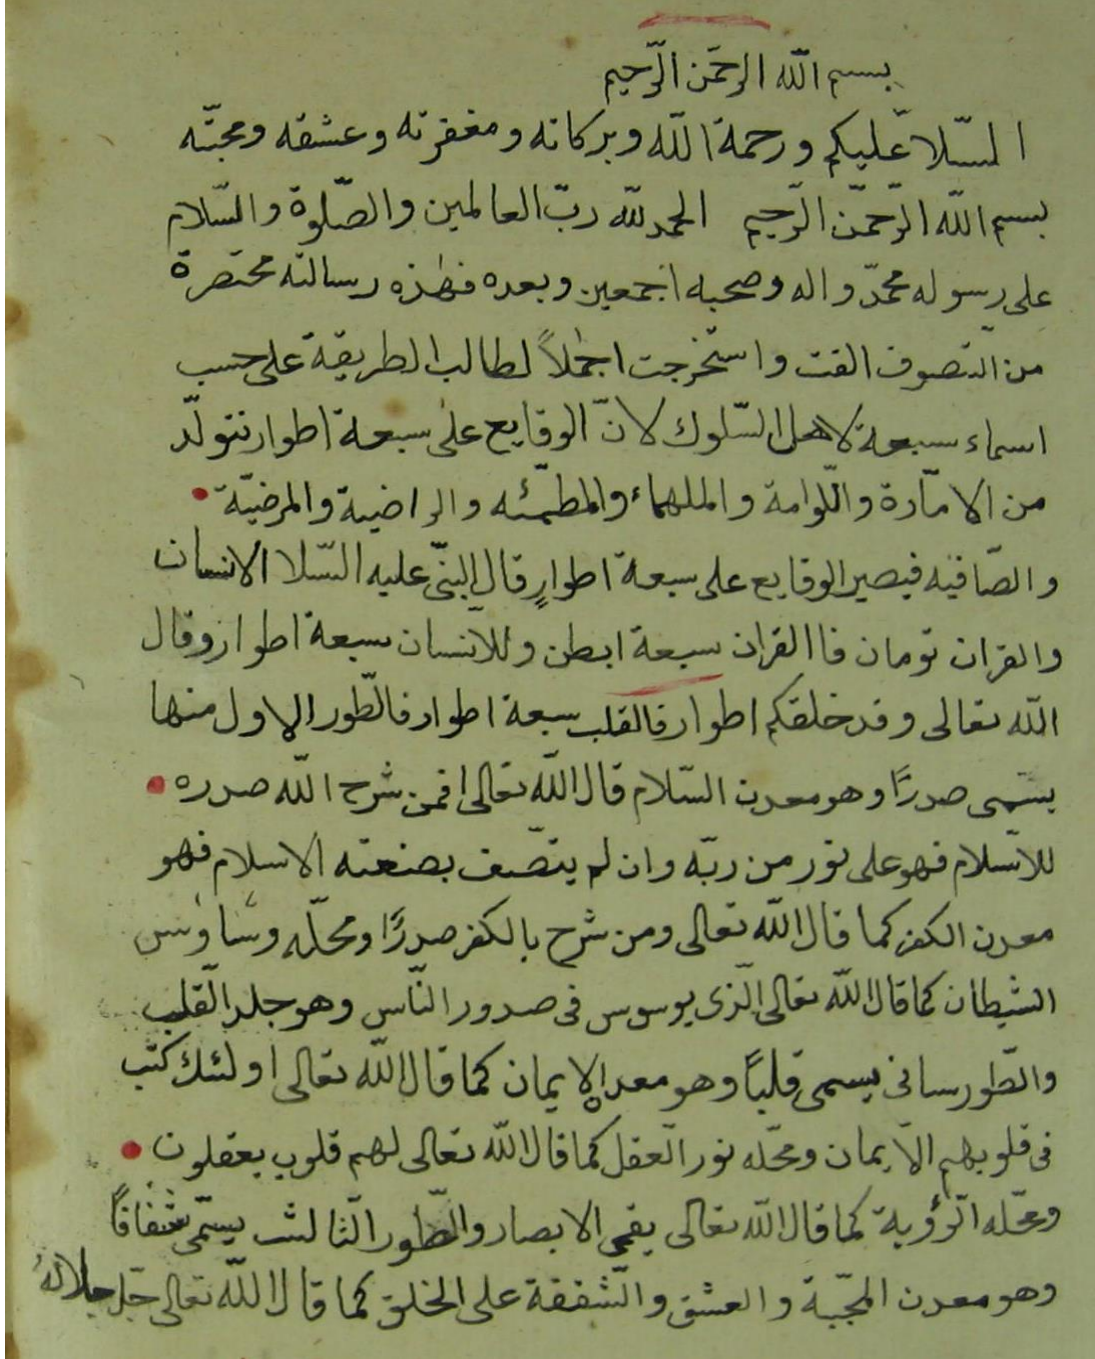 بسم الله الرحمن الرحيم
السّلا عليكم ورحمة الله وبركاته ومغفرته وعشقه ومحبّته
بسم الله الرّحمن الرّحيم الحمد للّه ربّ العالمين والصّلوة والسّلام
على رسوله محمّد واله وصحبه اجمعين وبعده فهذه رسالته مختصرة
من التصوف الفت واستخرجت اجملاً لطالب الطريقة على حسب
اسماء سبعة لاهل السّلوك لانّ الوقايع على سبعة اطوار تتولّد
من الامّارة واللّوامة والملهماء والمطمئنّه والراضية والمرضيّة
والصّافيه فيصير الوقايع على سبعة اطوارٍ قال النبىّ عليه السّلا الانسان
والقران تومان فاالقران سبعة ابطن وللانسان سبعة اطوار وقال
الله تعالى وقد خلقكم اطوار فالقلب سبعة اطوار فالطّور الاول منها
يسّمى صدرًا وهو معدن السّلام قال الله تعالى افمن شرح الله صدره
للاسّلام فهو على نور من ربّه وان لم يتصّف بصنعته الاسلام فهو
معدن الكفر كما قال الله تعالى ومن شرح بالكفر صدرًا ومحلّه وساوس
الشيطان كما قال الله تعالى الّذى يوسوس فى صدور النّاس وهو جلد القلب
والطّور سانى يسمى قلبًا وهو معد الايمان كما قال الله تعالى اولئك كتب
فى قلوبهم الايمان ومحّله نور العقل كما قال الله تعالى لهم قلوب يعقلون
ومحّله الرّؤية كما قال الله تعالى يقمى الابصار والطّور الثّالث يسّمى شفافًا
وهو معدن المحّبة والعشق والشّفقة على الخلق كما قال الله تعالى جّل جلالهُ